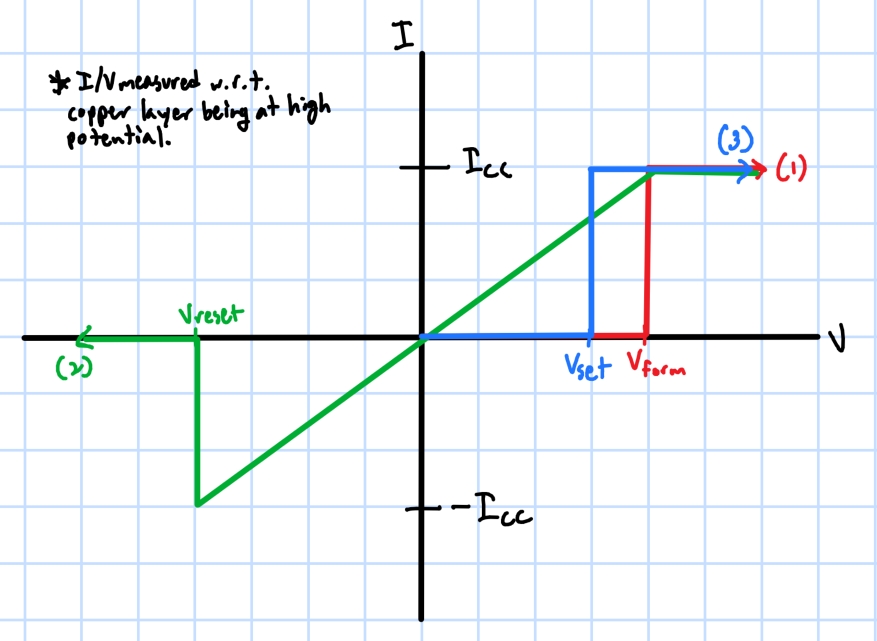 I
* I/V measured w.r.t.
copper layer being at high
potential.
(3)
Icc
(1)
Vreset
V
(2)
Vset
Vform
-Icc